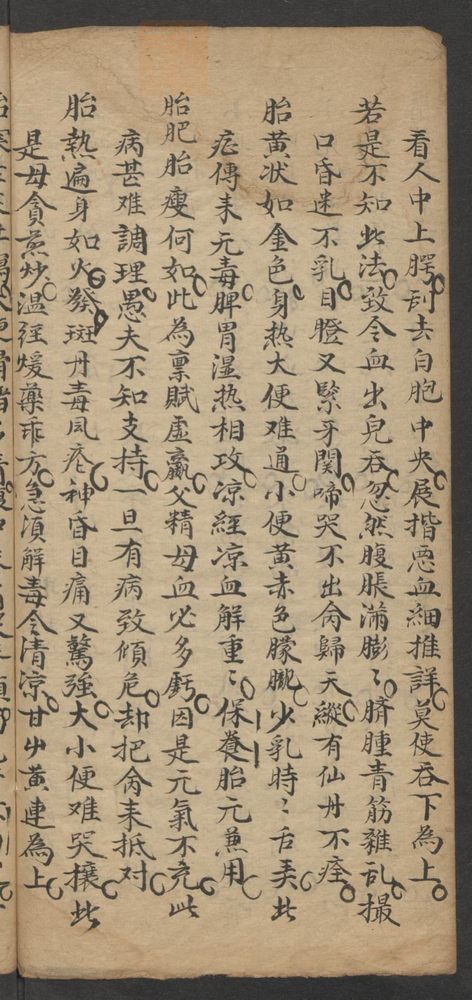 看人中上腭刮去白胞中央展揩恶血細推詳莫使吞下為上
若是不知此法致令血出兒吞忽然腹脹滿膨〻臍腫青筋雜乱撮
口昏迷不乳目瞪又緊牙関啼哭不出命歸天縱有仙丹不痊
胎黃状如金色身热大便难通小便黃赤色朦朧少乳時〻舌美此
症傳来元毒脾胃湿热相攻凉経凉血解重〻保養胎元兼用
胎肥胎瘦何如此為禀賦虛羸父精母血必多虧因是元氣不充此
病甚难調理愚夫不知支持一旦有病致傾危却把命来抵对
胎熱遍身如火發斑丹毒風疮神昏目痛又驚強大小便难哭攘此
是母貪煎炒温経煖藥乖方急須解毒令清凉甘草黃連為上